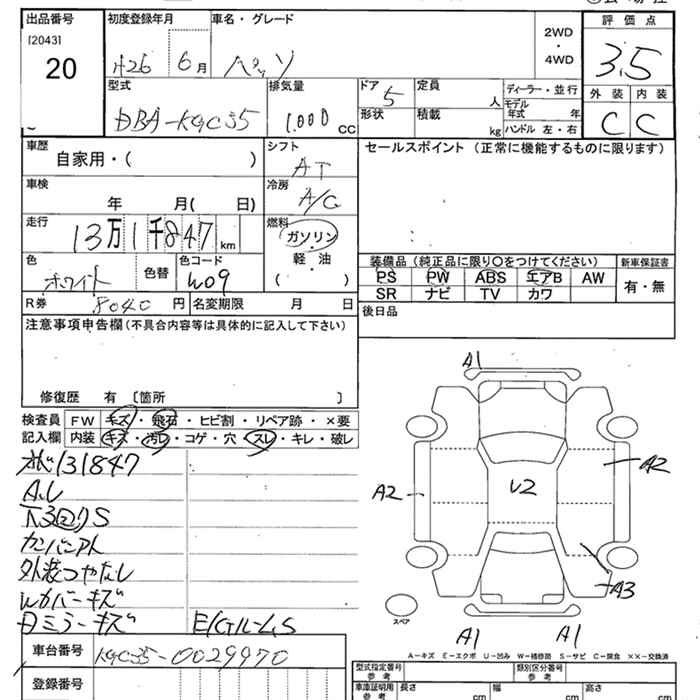 出品番号 初度登録年月 車名・グレード 2WD・4WD 評価点
[2043]
20 H26 6月 3.5
外装 内装
C C
型式 排気量 ドア 定員 ディーラー・並行
DBA-KGC35 1.000 CC 5 人 モデル年式 年
形状 積載 kg ハンドル 左・右
車歴 シフト セールスポイント (正常に機能するものに限ります)
自家用・( ) AT
車検 冷房
年 月( 日) A/C
走行 燃料
13万1千847 km ガソリン・軽油 ( )
装備品 (純正品に限り○をつけてください) 新車保証書
色 色替 色コード PS PW ABS エアB AW 有・無
ホワイト W09 SR ナビ TV カワ
R券 8040 円 名変期限 月 日 後日品
注意事項申告欄 (不具合内容等は具体的に記入して下さい)
修復歴 有 〔箇所 〕
検査員 FW キズ・飛石・ヒビ割・リペア跡・×要
記入欄 内装 キズ・汚レ・コゲ・穴・スレ・キレ・破レ
131847
下3回りS
外装つやなし
カバーキズ
ミラーキズ
A1
A2 U2 A2
A3
スペア
A1 A1
A-キズ E-エクボ U-凹み W-補修跡 S-サビ C-腐食 XX-交換済
車台番号 KGC35-0029970
登録番号
型式指定番号 参考 類別区分番号 参考
車庫証明用 参考 長さ cm 幅 cm 高さ cm